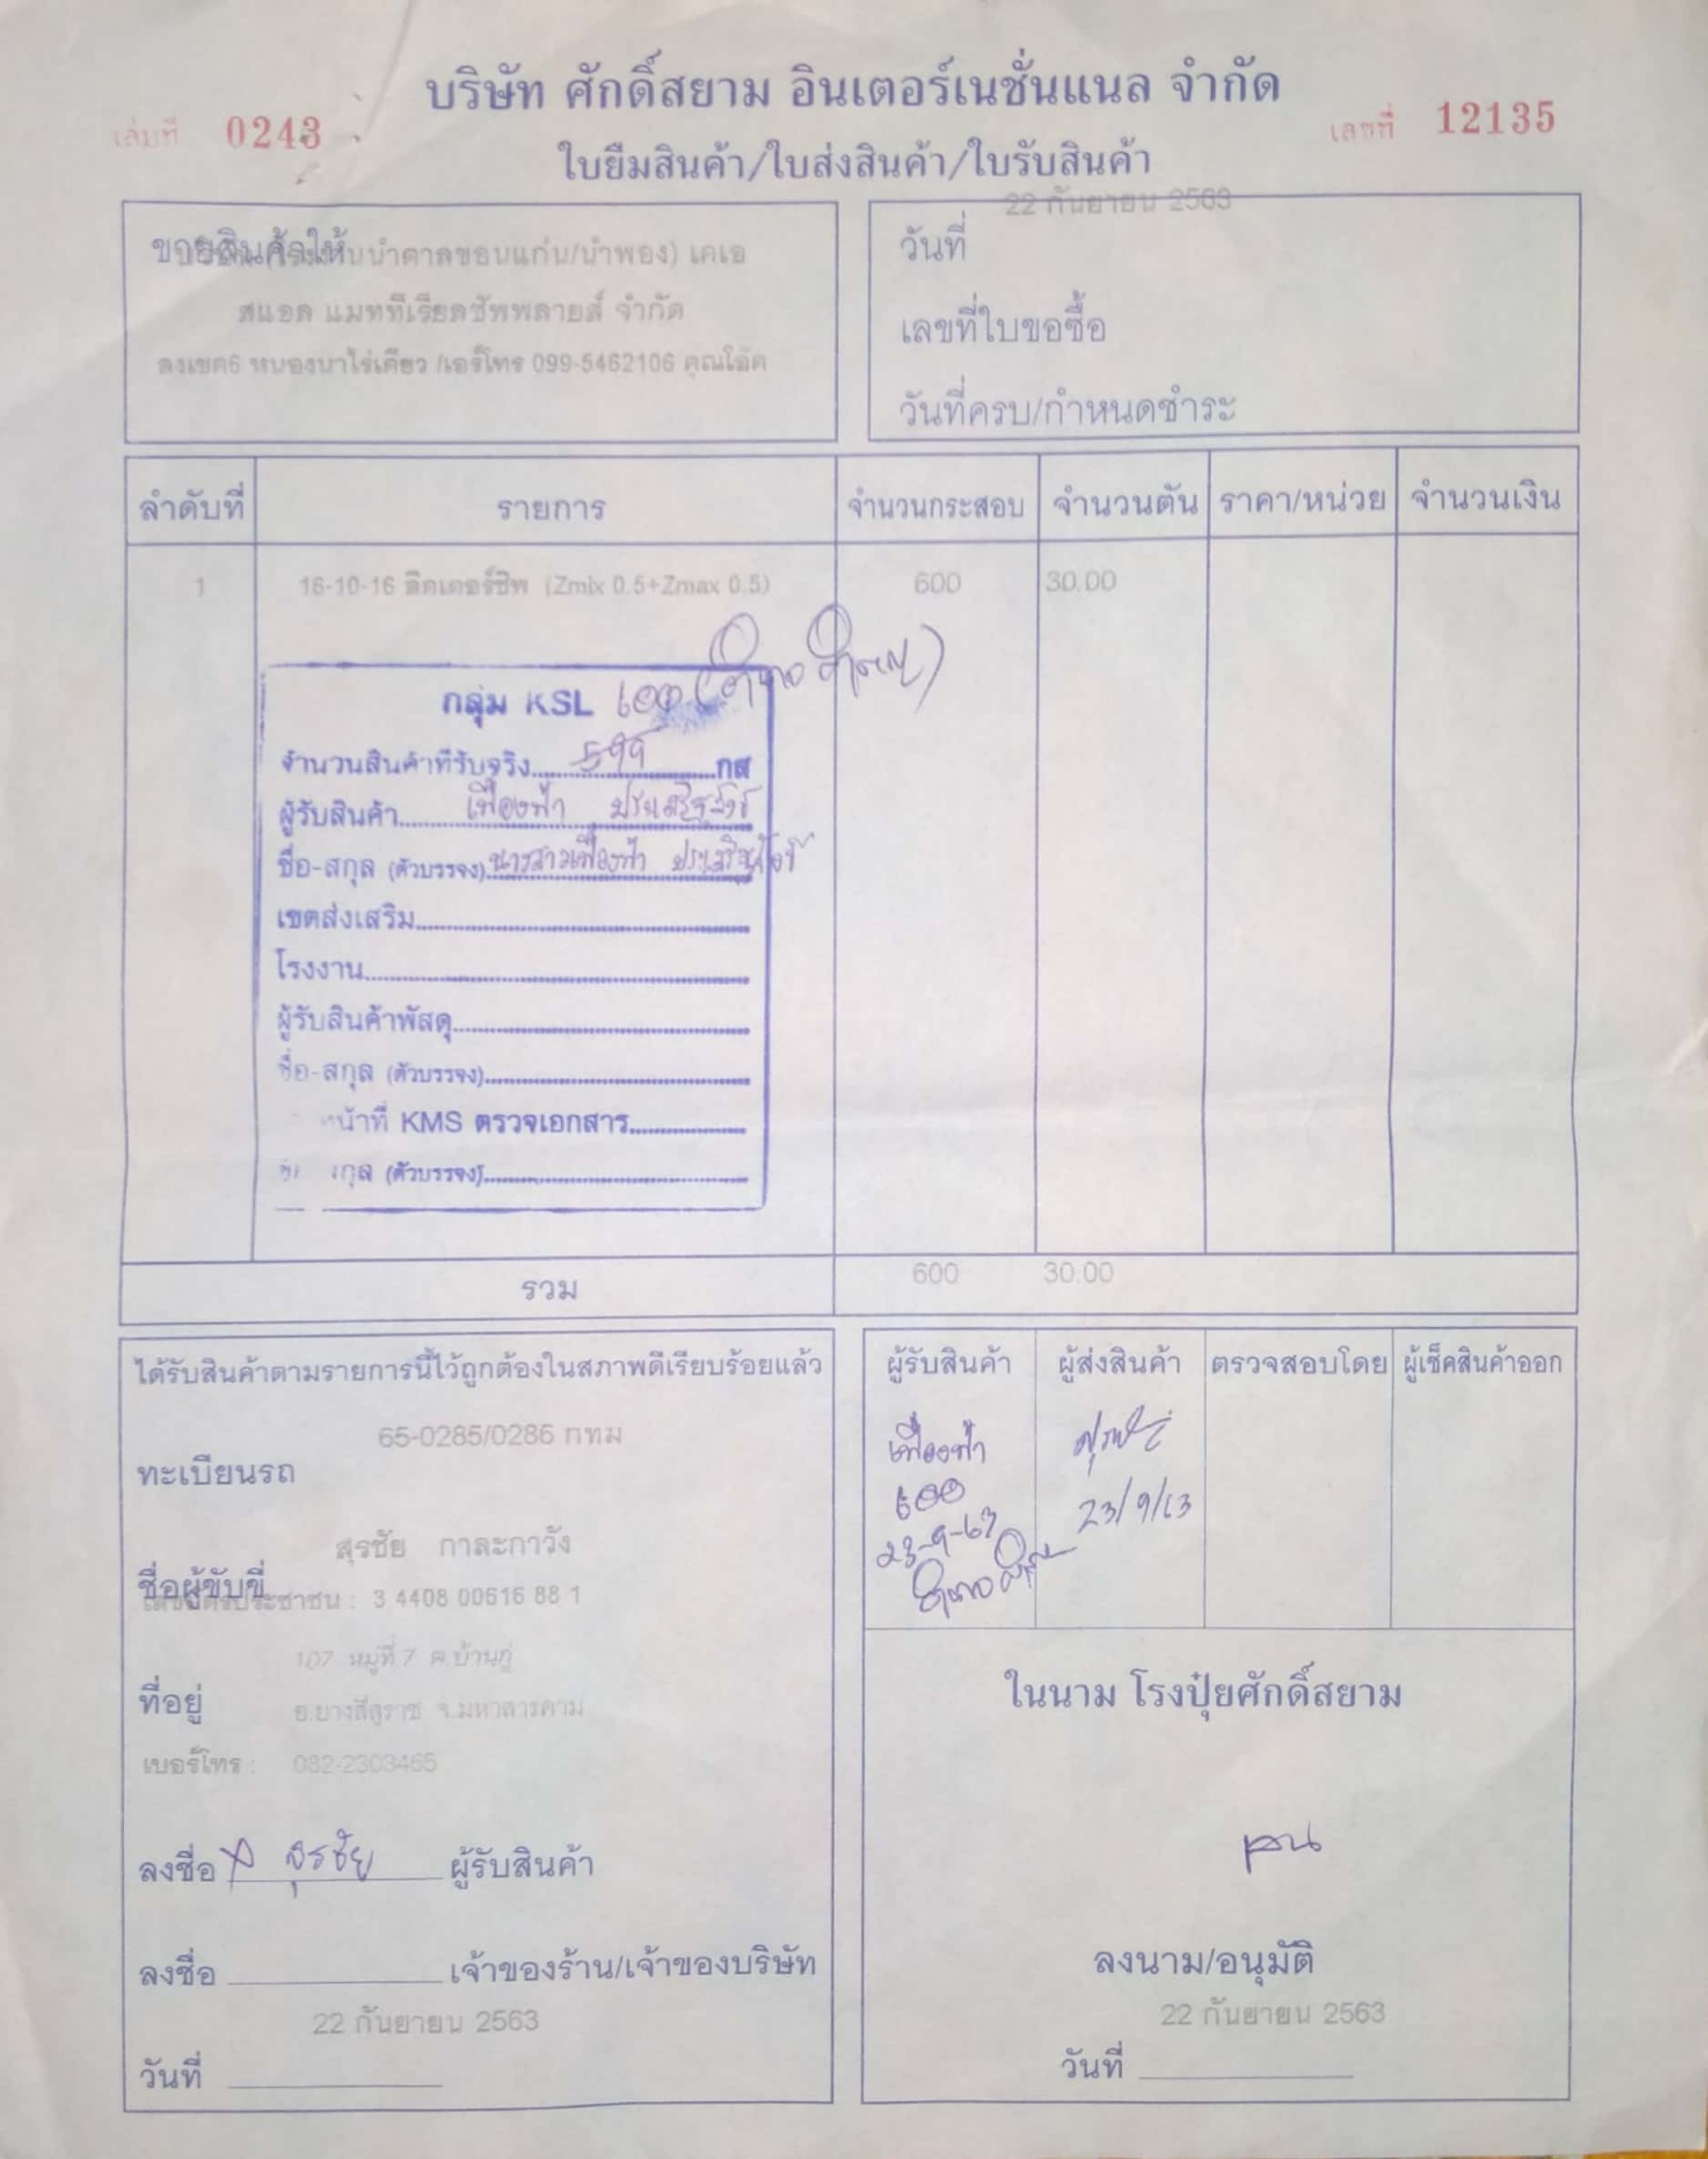 บริษัท ศักดิ์สยาม อินเตอร์เนชั่นแนล จำกัด
เล่มที่ 0243
เลขที่ 12135
ใบยืมสินค้า/ใบส่งสินค้า/ใบรับสินค้า
22 กันยายน 2563
ขายสินค้าให้ น้ำตาลขอนแก่น/น้ำพอง) เคเอ
สแอล แมททีเรียลซัพพลายส์ จำกัด
ลงเขต6 หนองนาไร่เดียว /เอร์โทร 099-5462106 คุณโอ๊ต
วันที่
เลขที่ใบขอซื้อ
วันที่ครบ/กำหนดชำระ
ลำดับที่ รายการ จำนวนกระสอบ จำนวนตัน ราคา/หน่วย จำนวนเงิน
1 16-10-16 ลีดเดอร์ชิพ (Zmix 0.5+Zmax 0.5) 600 30.00
กลุ่ม KSL 600
จำนวนสินค้าที่รับจริง 599 กส
ผู้รับสินค้า เฟื่องฟ้า
ชื่อ-สกุล (ตัวบรรจง) นางสาวเฟื่องฟ้า
เขตส่งเสริม
โรงงาน
ผู้รับสินค้าพัสดุ
ชื่อ-สกุล (ตัวบรรจง)
หน้าที่ KMS ตรวจเอกสาร
กุล (ตัวบรรจง)
รวม 600 30.00
ได้รับสินค้าตามรายการนี้ไว้ถูกต้องในสภาพดีเรียบร้อยแล้ว
65-0285/0286 กทม
ทะเบียนรถ
สุรชัย กาละกาวัง
ชื่อผู้ขับขี่
เลขบัตรประชาชน : 3 4408 00616 88 1
107 หมู่ที่ 7 ต.บ้านกู่
ที่อยู่ อ.ยางสีสุราช จ.มหาสารคาม
เบอร์โทร : 082-2303465
ลงชื่อ X สุรชัย ผู้รับสินค้า
ลงชื่อ เจ้าของร้าน/เจ้าของบริษัท
22 กันยายน 2563
วันที่
ผู้รับสินค้า ผู้ส่งสินค้า ตรวจสอบโดย ผู้เช็คสินค้าออก
เฟื่องฟ้า
600
23-9-63
23/9/63
ในนาม โรงปุ๋ยศักดิ์สยาม
ลงนาม/อนุมัติ
22 กันยายน 2563
วันที่